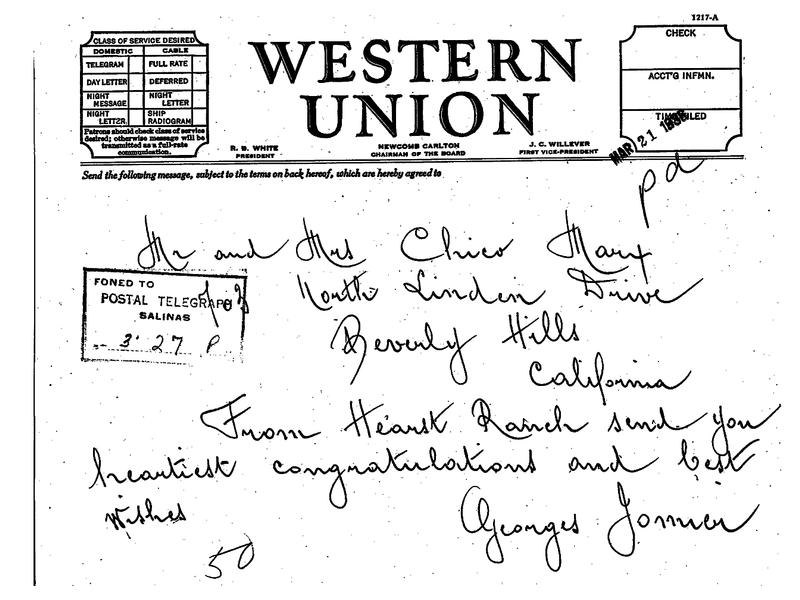 1217-A
CLASS OF SERVICE DESIRED
DOMESTIC CABLE
TELEGRAM FULL RATE
DAY LETTER DEFERRED
NIGHT MESSAGE NIGHT LETTER
NIGHT LETTER SHIP RADIOGRAM
Patrons should check class of service
desired; otherwise message will be
transmitted as a full-rate
communication.
WESTERN
UNION
R. B. WHITE
PRESIDENT
NEWCOMB CARLTON
CHAIRMAN OF THE BOARD
J. C. WILLEVER
FIRST VICE-PRESIDENT
CHECK
ACCT'G INFMN.
TIME FILED
MAR 21
Send the following message, subject to the terms on back hereof, which are hereby agreed to
pd
Mr and Mrs Chico Marx
FONED TO
POSTAL TELEGRAPH
SALINAS
3 27 P
703 North Linden Drive
Beverly Hills
California
From Hearst Ranch send you
heartiest congratulations and best
wishes
Georges
50